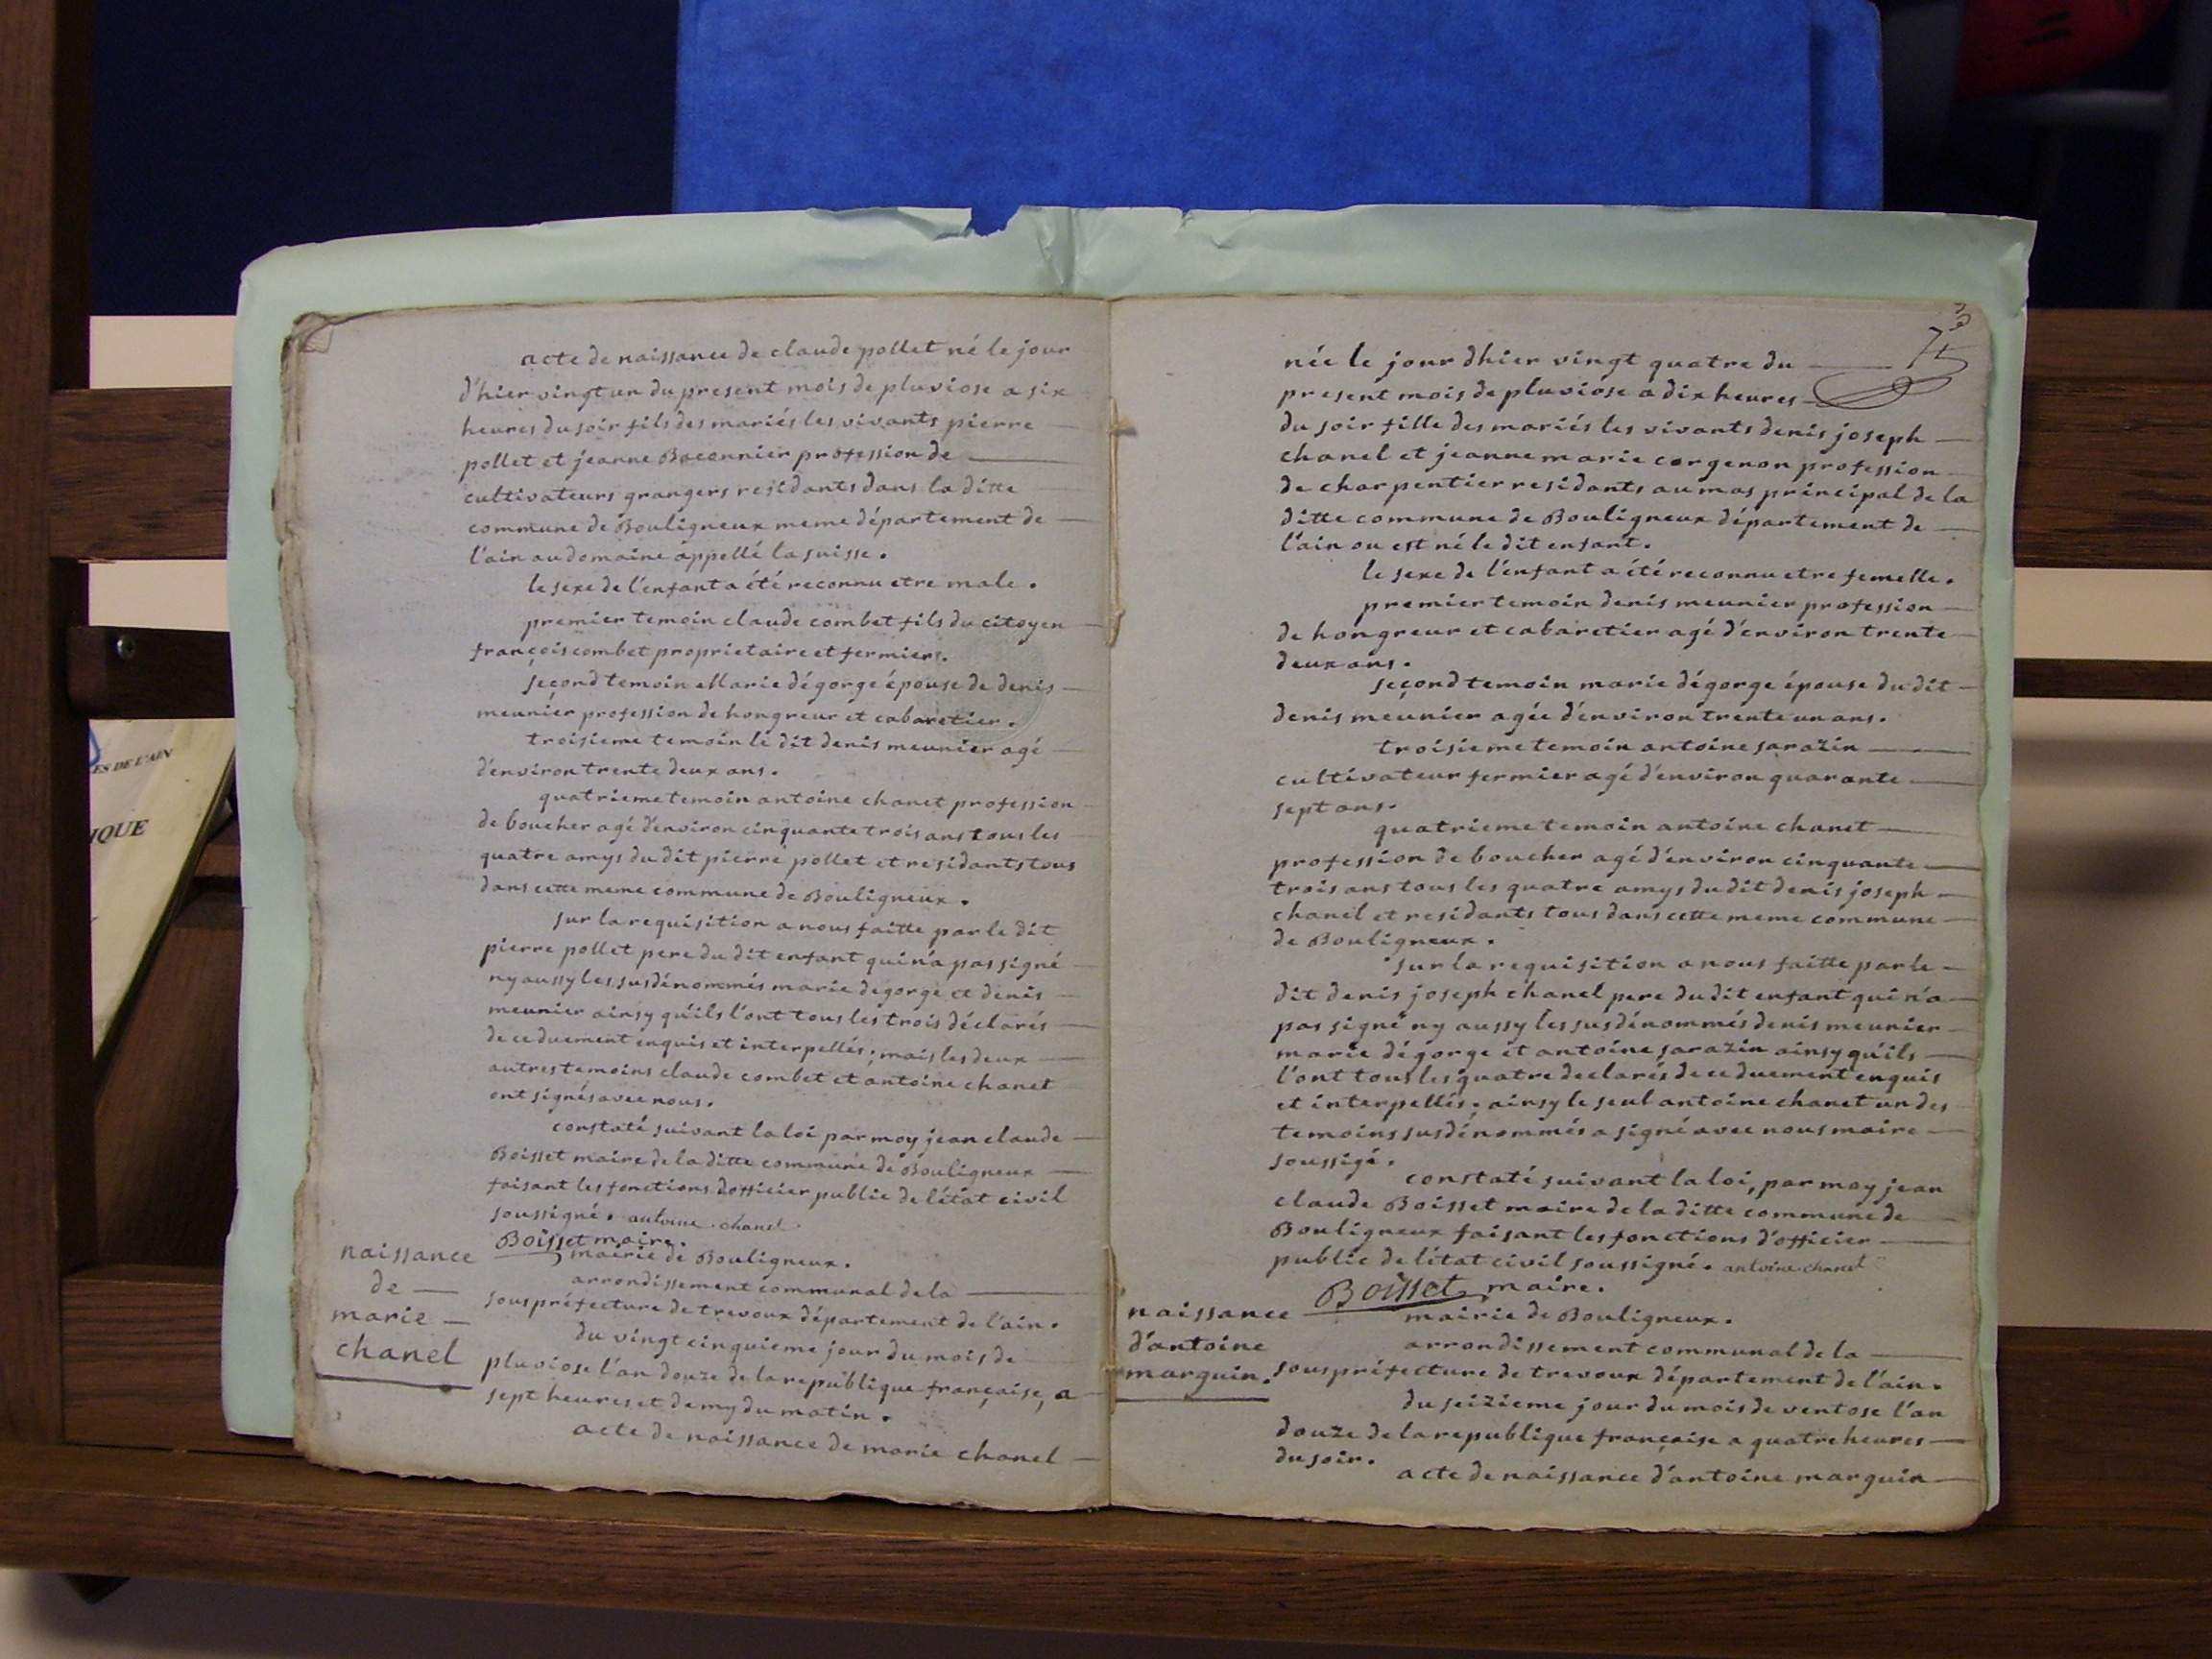 acte de naissance de claude pollet né le jour
d'hier vingt un du present mois de pluviose a six
heures du soir fils des mariés les vivants pierre
pollet et jeanne Baconnier profession de
cultivateurs grangers residants dans la ditte
commune de Bouligneux meme département de
l'ain au domaine appellé la suisse.
le sexe de l'enfant a été reconnu etre male.
premier temoin claude combet fils du citoyen
françois combet proprietaire et fermiers.
second temoin Marie dégorge épouse de denis
meunier profession de hongreur et cabaretier.
troisieme temoin le dit denis meunier agé
d'environ trente deux ans.
quatrieme temoin antoine chanet profession
de boucher agé d'environ cinquante trois ans tous les
quatre amys du dit pierre pollet et residants tous
dans cette meme commune de Bouligneux.
sur la requisition a nous faitte par le dit
pierre pollet pere du dit enfant qui n'a pas signé
ny aussy les susdénommés marie degorge et denis
meunier ainsy qu'ils l'ont tous les trois déclarés
de ce duement enquis et interpellés; mais les deux
autres temoins claude combet et antoine chanet
ont signés avec nous.
constaté suivant la loi par moy jean claude
Boisset maire de la ditte commune de Bouligneux
faisant les fonctions d'officier public de l'état civil
soussigné. antoine chanet
Boisset maire.
naissance
de
marie
chanel
mairie de Bouligneux.
arrondissement communal de la
souspréfecture de trevoux département de l'ain.
du vingt cinquieme jour du mois de
pluviose l'an douze de la republique française, a
sept heures et demy du matin.
acte de naissance de marie chanel
75
née le jour dhier vingt quatre du
present mois de pluviose a dix heures
du soir fille des mariés les vivants denis joseph
chanel et jeanne marie corgenon profession
de charpentier residants au mas principal de la
ditte commune de Bouligneux département de
l'ain ou est né le dit enfant.
le sexe de l'enfant a été reconnu etre femelle.
premier temoin denis meunier profession
de hongreur et cabaretier agé d'environ trente
deux ans.
second temoin marie dégorge épouse du dit
denis meunier agée d'environ trente un ans.
troisieme temoin antoine sarazin
cultivateur fermier agé d'environ quarante
sept ans.
quatrieme temoin antoine chanet
profession de boucher agé d'environ cinquante
trois ans tous les quatre amys du dit denis joseph
chanel et residants tous dans cette meme commune
de Bouligneux.
sur la requisition a nous faitte par le
dit denis joseph chanel pere du dit enfant qui n'a
pas signé ny aussy les susdénommés denis meunier
marie dégorge et antoine sarazin ainsy qu'ils
l'ont tous les quatre declarés de ce duement enquis
et interpellés; ainsy le seul antoine chanet un des
temoins susdénommés a signé avec nous maire
soussigé.
constaté suivant la loi, par moy jean
claude Boisset maire de la ditte commune de
Bouligneux faisant les fonctions d'officier
public de l'état civil soussigné. antoine chanet
Boisset maire.
naissance
d'antoine
marguin.
mairie de Bouligneux.
arrondissement communal de la
souspréfecture de trevoux département de l'ain.
du seizieme jour du mois de ventose l'an
douze de la republique française a quatre heures
du soir.
acte de naissance d'antoine marguin
ES DE L'AIN
IQUE